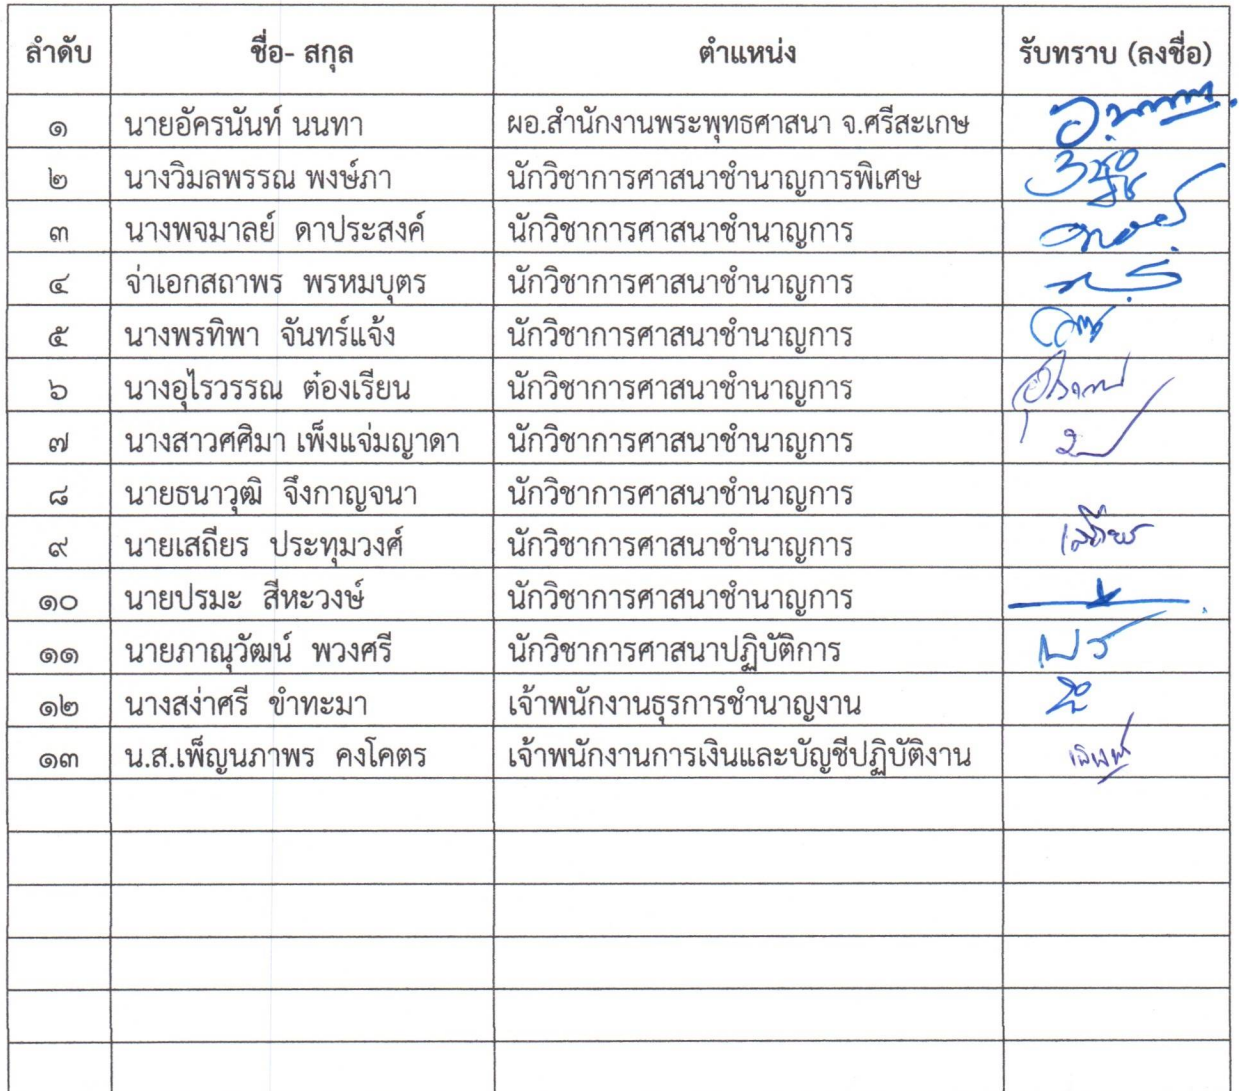 ลำดับ ชื่อ- สกุล ตำแหน่ง รับทราบ (ลงชื่อ)
๑ นายอัครนันท์ นนทา ผอ.สำนักงานพระพุทธศาสนา จ.ศรีสะเกษ
๒ นางวิมลพรรณ พงษ์ภา นักวิชาการศาสนาชำนาญการพิเศษ
๓ นางพจมาลย์ ดาประสงค์ นักวิชาการศาสนาชำนาญการ
๔ จ่าเอกสถาพร พรหมบุตร นักวิชาการศาสนาชำนาญการ
๕ นางพรทิพา จันทร์แจ้ง นักวิชาการศาสนาชำนาญการ
๖ นางอุไรวรรณ ต๋องเรียน นักวิชาการศาสนาชำนาญการ
๗ นางสาวศศิมา เพ็งแจ่มญาดา นักวิชาการศาสนาชำนาญการ
๘ นายธนาวุฒิ จึงกาญจนา นักวิชาการศาสนาชำนาญการ
๙ นายเสถียร ประทุมวงศ์ นักวิชาการศาสนาชำนาญการ เสถียร
๑๐ นายปรมะ สีหะวงษ์ นักวิชาการศาสนาชำนาญการ
๑๑ นายภาณุวัฒน์ พวงศรี นักวิชาการศาสนาปฏิบัติการ
๑๒ นางสง่าศรี ขำทะมา เจ้าพนักงานธุรการชำนาญงาน
๑๓ น.ส.เพ็ญนภาพร คงโคตร เจ้าพนักงานการเงินและบัญชีปฏิบัติงาน